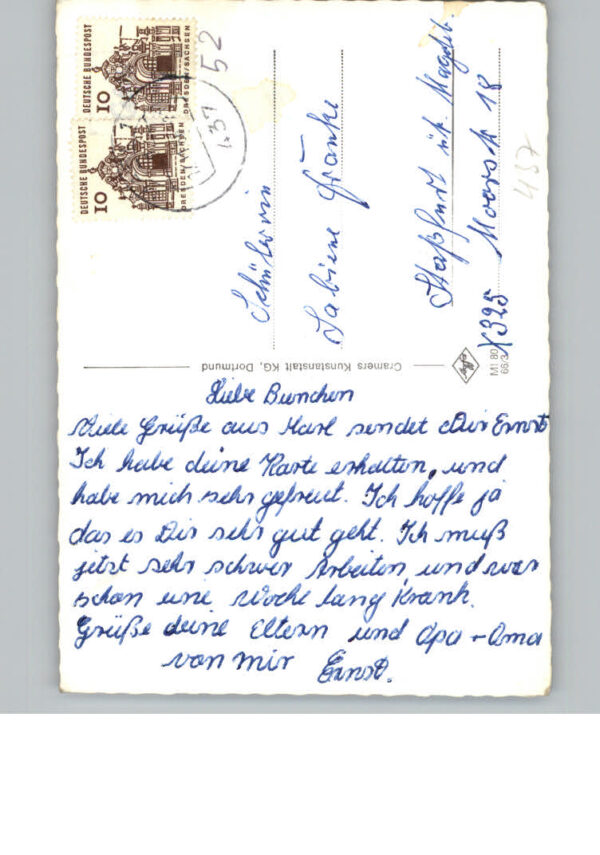 DEUTSCHE BUNDESPOST
10
DRESDEN/SACHSEN
DEUTSCHE BUNDESPOST
10
DRESDEN/SACHSEN
437
52
Schülerin
Sabiene Franke
Staßfurt üb. Magdeb.
X325
18
437
Cramers Kunstanstalt KG, Dortmund
MI 80
66/3
Liebe
Viele Grüße aus Marl sendet Dir Ernst
Ich habe deine Karte erhalten, und
habe mich sehr gefreut. Ich hoffe ja
das es Dir sehr gut geht. Ich muß
jetzt sehr schwer Arbeiten, und war
schon eine Woche lang Krank.
Grüße deine Eltern und Opa + Oma
von mir Ernst.